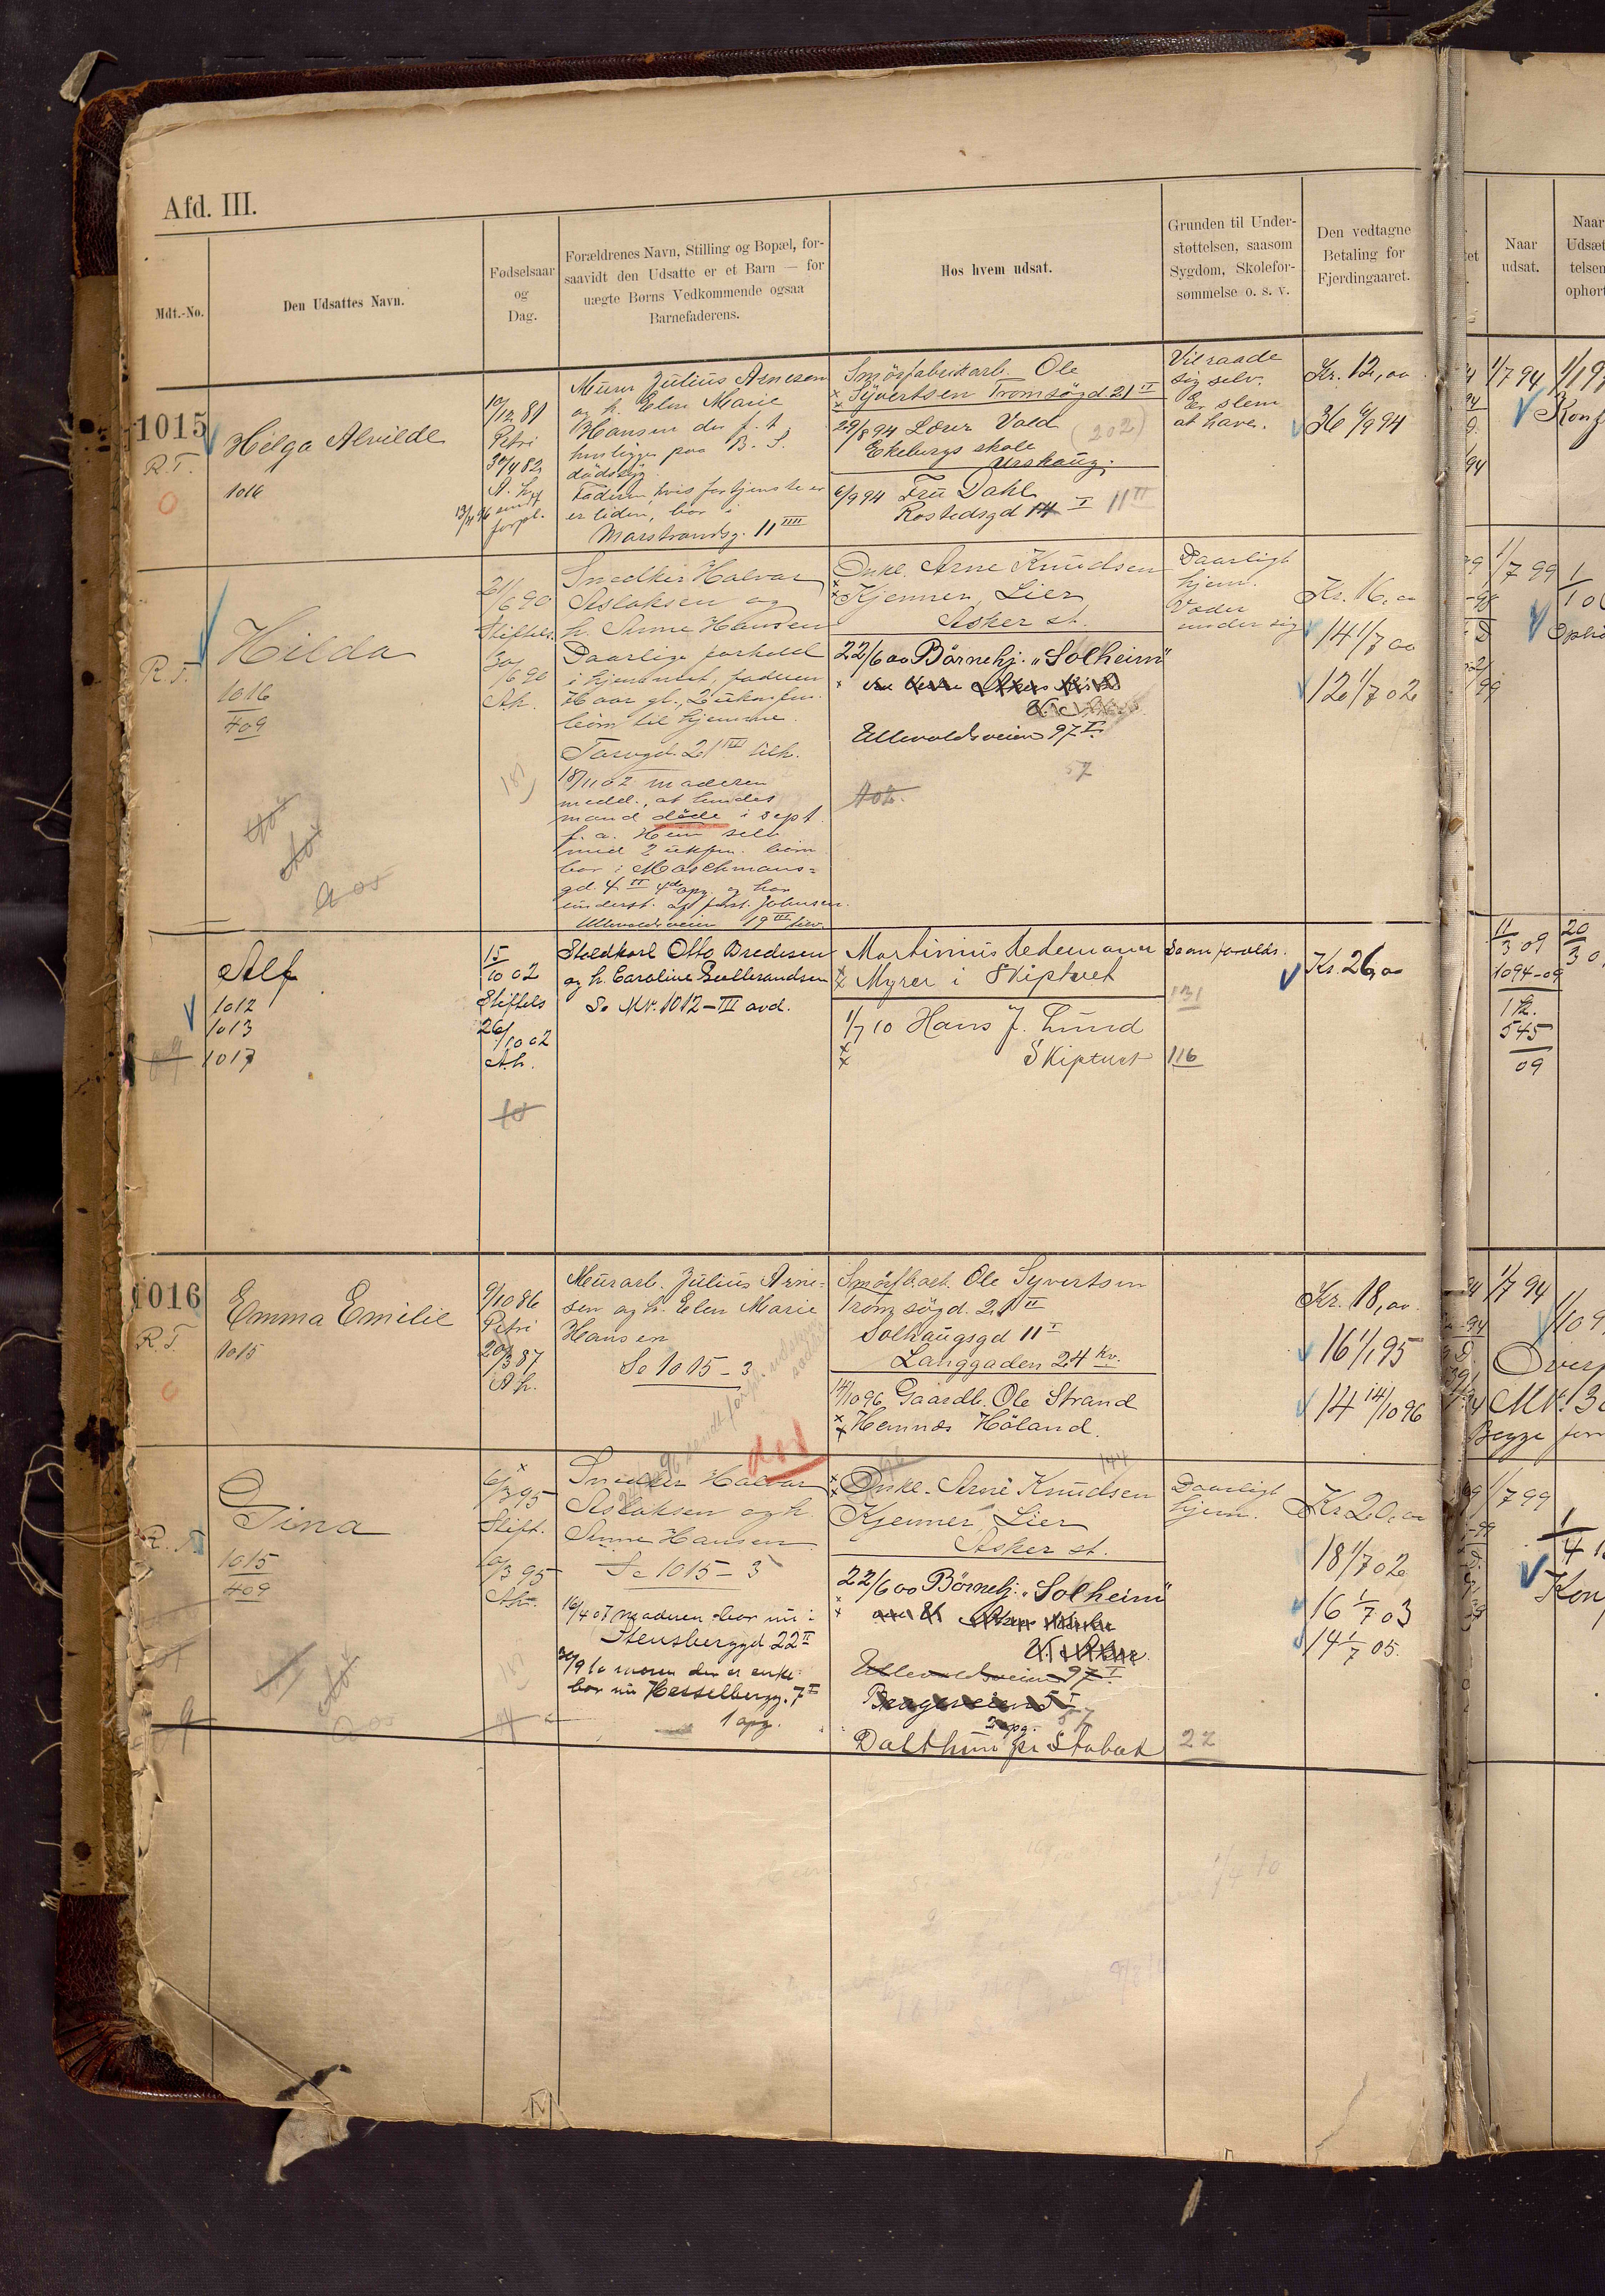 Afd. III.
Mdt.-No.
Den Udsattes Navn.
Fødselsaar
og
Dag.
Forældrenes Navn, Stilling og Bopæl, for-
saavidt den Udsatte er et Barn — for
uægte Børns Vedkommende ogsaa
Barnefaderens.
Hos hvem udsat.
Grunden til Under-
støttelsen, saasom
Sygdom, Skolefor-
sømmelse o. s. v.
Den vedtagne
Betaling for
Fjerdingaaret.
Naar
udsat.
Naar
Udsæt
telsen
ophørt
1015
R.T.
Helga Alvilde
1016
10/12 81
Petri
30/4 82
A. h.
13/11 96 sendt
forpl.
Murer Julius Arnesen
og h. Elen Marie
Hansen der f. t.
henligger paa B. S.
dødssyg.
Faderen hvis fortjeneste er
er liden, bor i
Marstrandsg. 11 IIII
Smörfabrikarb. Ole
Syvertsen Tromsögd 21 II
29/8 94 Lærer Vold
(202)
Ekebergs skole
Urskoug.
6/9 94 Fru Dahl
Rostedsgd 14 I 11 II
Vil raade
sig selv.
Er slem
at have.
Kr. 12,00
36 6/9 94
1/7 94
R.T.
Hilda
1016
409
21/6 90
Stiftels.
30/6 90
Ah.
Snedker Halvar
Aslaksen og
h. Anne Hansen
Daarlige forhold
i hjemmet, faderen
aar gl., 2 ukonfm.
börn til hjemme.
Torvgd. 21 III tilh.
18/11 02 moderen
medd., at hendes
mand döde i sept.
f. a. Hun selv
med 2 ukfm. börn
bor i Maschmans-
gd. 4 II 4de opg. og har
underst. af forst. Johnsen.
Ullevoldsveien 19 III
Onkl. Arne Knudsen
Kjenner, Lier
Asker st.
22/6 00 Börnehj. "Solheim"
Ullevoldsveien 97 I.
57
102.
Daarligt
hjem.
Væder
under sig
Kr. 16,00
14 1/7 00
12 1/7 02
1/7 99
Alf
1012
1013
1017
15/10 02
Stiftels
26/10 02
A.h.
Staldkarl Otto Bredesen
og h. Caroline Gulbrandsen
Se Mt. 1012 - III avd.
Martinius Hedemann
Myrer i Skiptvet
1/7 10 Hans J. Lund
Skiptvet
131
116
Kr. 26,00
11/3 09
1094-09
545
09
1016
R.T.
Emma Emilie
1015
9/10 86
Petri
20/3 87
A.h.
Murarb. Julius Arne-
sen og h. Elen Marie
Hansen
Se 1015 - 3
död
Smörf.arb. Ole Syvertsen
Tromsögd. 21 II
Solhaugsgd 11 I
Langgaden 24 Kv.
14/10 96 Gaardb. Ole Strand
Hemnæs Höland.
144
Kr. 18,00.
16 1/1 95
14 14/10 96
1/7 94
R.T.
Gina
1015
409
6/3 95
Stift.
10/3 95
Ah.
Snedker Halvar
Aslaksen og h.
Anne Hansen
Se 1015 - 3
16/4 07 moderen bor nu i
Stensberggd 22 II
20/9 10 moren der er enke
bor nu Hesselbergg. 7 II
1 opg.
Onkl. Arne Knudsen
Kjenner, Lier
Asker st.
22/6 00 Börnehj. "Solheim"
Ullevoldsveien 97 I.
Bergsveien 5 I
2 opg.
57
Dalthun pr Stabæk
Daarligt
hjem.
22
Kr. 20,00
18 1/7 02
16 1/7 03
14 1/7 05.
1/7 99